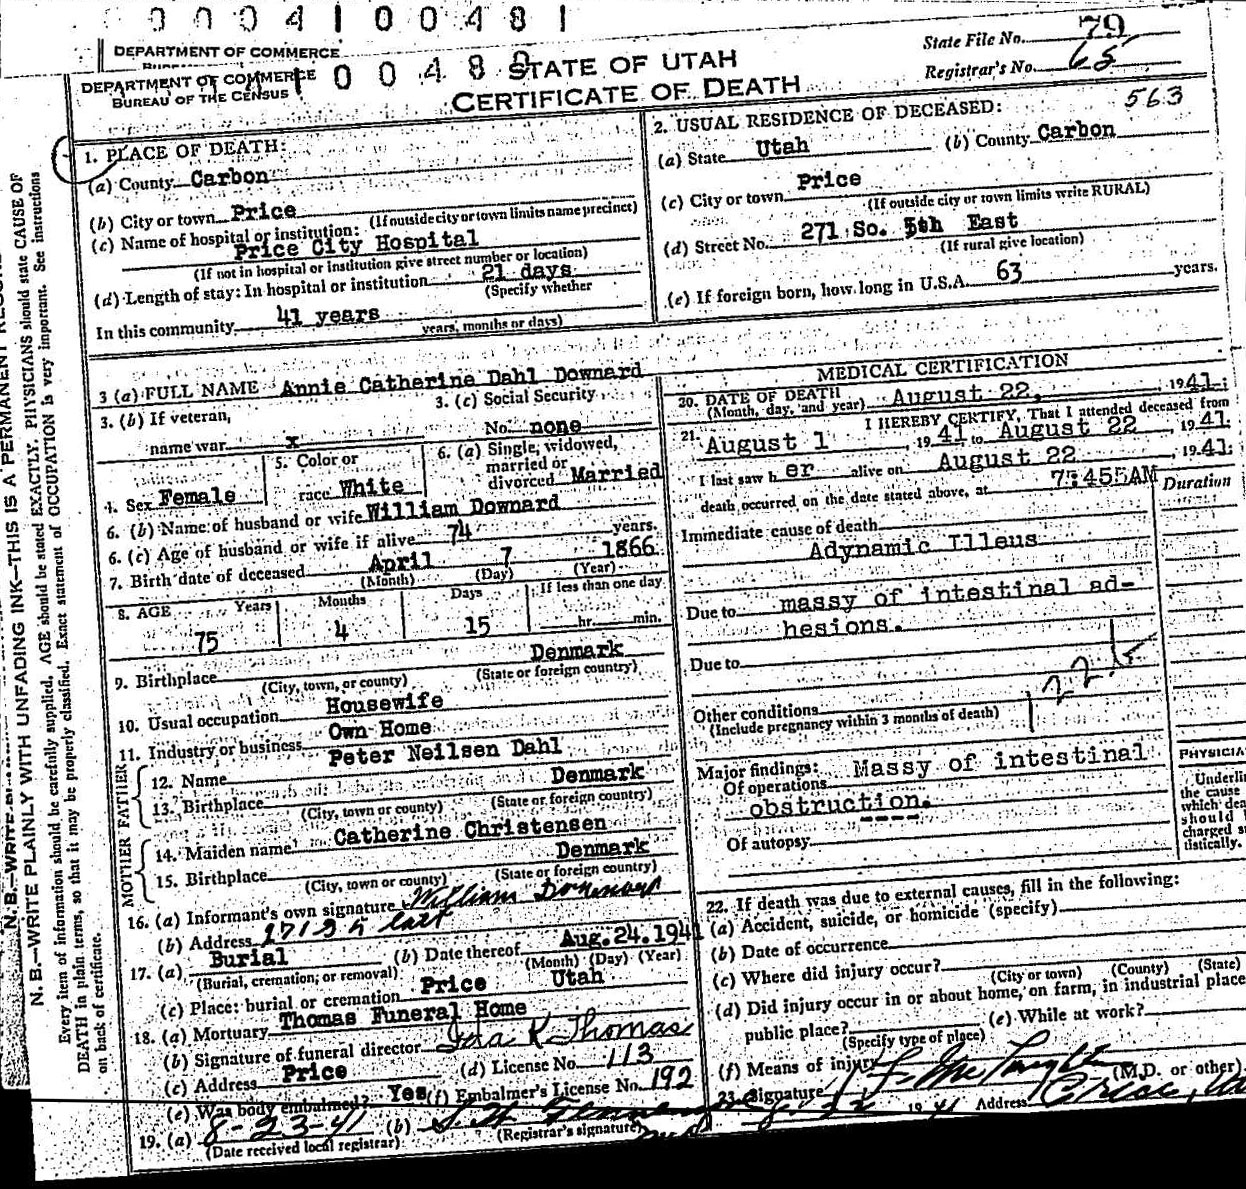 0004100481
DEPARTMENT OF COMMERCE
DEPARTMENT OF COMMERCE
BUREAU OF THE CENSUS
STATE OF UTAH
CERTIFICATE OF DEATH
State File No. 79
Registrar's No. 65
563
1. PLACE OF DEATH:
(a) County Carbon
(b) City or town Price
(If outside city or town limits name precinct)
(c) Name of hospital or institution:
Price City Hospital
(If not in hospital or institution give street number or location)
(d) Length of stay: In hospital or institution 21 days
(Specify whether
In this community 41 years
years, months or days)
2. USUAL RESIDENCE OF DECEASED:
(a) State Utah (b) County Carbon
(c) City or town Price
(If outside city or town limits write RURAL)
(d) Street No. 271 So. 5th East
(If rural give location)
(e) If foreign born, how long in U.S.A. 63 years.
3 (a) FULL NAME Annie Catherine Dahl Downard
3. (b) If veteran,
name war x
3. (c) Social Security
No. none
4. Sex Female
5. Color or
race White
6. (a) Single, widowed,
married or
divorced Married
6. (b) Name of husband or wife William Downard
6. (c) Age of husband or wife if alive 74 years.
7. Birth date of deceased April 7 1866
(Month) (Day) (Year)
8. AGE Years Months Days If less than one day
75 4 15 hr. min.
9. Birthplace Denmark
(City, town, or county) (State or foreign country)
10. Usual occupation Housewife
11. Industry or business Own Home
FATHER
12. Name Peter Neilsen Dahl
13. Birthplace Denmark
(City, town or county) (State or foreign country)
MOTHER
14. Maiden name Catherine Christensen
15. Birthplace Denmark
(City, town or county) (State or foreign country)
16. (a) Informant's own signature William Downard
(b) Address 271 S 5 East
17. (a) Burial (b) Date thereof Aug. 24. 1941
(Burial, cremation, or removal) (Month) (Day) (Year)
(c) Place: burial or cremation Price Utah
18. (a) Mortuary Thomas Funeral Home
(b) Signature of funeral director Ida K Thomas
(c) Address Price (d) License No. 113
(e) Was body embalmed? Yes (f) Embalmer's License No. 192
19. (a) 8-23-41 (b)
(Date received local registrar) (Registrar's signature)
MEDICAL CERTIFICATION
20. DATE OF DEATH
(Month, day, and year) August 22, 1941.
21. I HEREBY CERTIFY, That I attended deceased from
August 1, 1941 to August 22, 1941.
I last saw her alive on August 22, 1941.
death occurred on the date stated above, at 7:455AM
Duration
Immediate cause of death
Adynamic Illeus
Due to massy of intestinal ad-
hesions.
Due to
122 b
Other conditions
(Include pregnancy within 3 months of death)
Major findings:
Of operations Massy of intestinal
obstruction.
Of autopsy
PHYSICIA
Underlin
the cause
which dea
should
charged s
tistically.
22. If death was due to external causes, fill in the following:
(a) Accident, suicide, or homicide (specify)
(b) Date of occurrence
(c) Where did injury occur?
(City or town) (County) (State)
(d) Did injury occur in or about home, on farm, in industrial place
public place? (e) While at work?
(Specify type of place)
(f) Means of injury
23. Signature (M.D. or other)
22 1941 Address Price,
N. B.—WRITE PLAINLY WITH UNFADING INK—THIS IS A PERMANENT
Every item of information should be carefully supplied. AGE should be stated EXACTLY. PHYSICIANS should state CAUSE OF
DEATH in plain terms, so that it may be properly classified. Exact statement of OCCUPATION is very important. See instructions
on back of certificate.